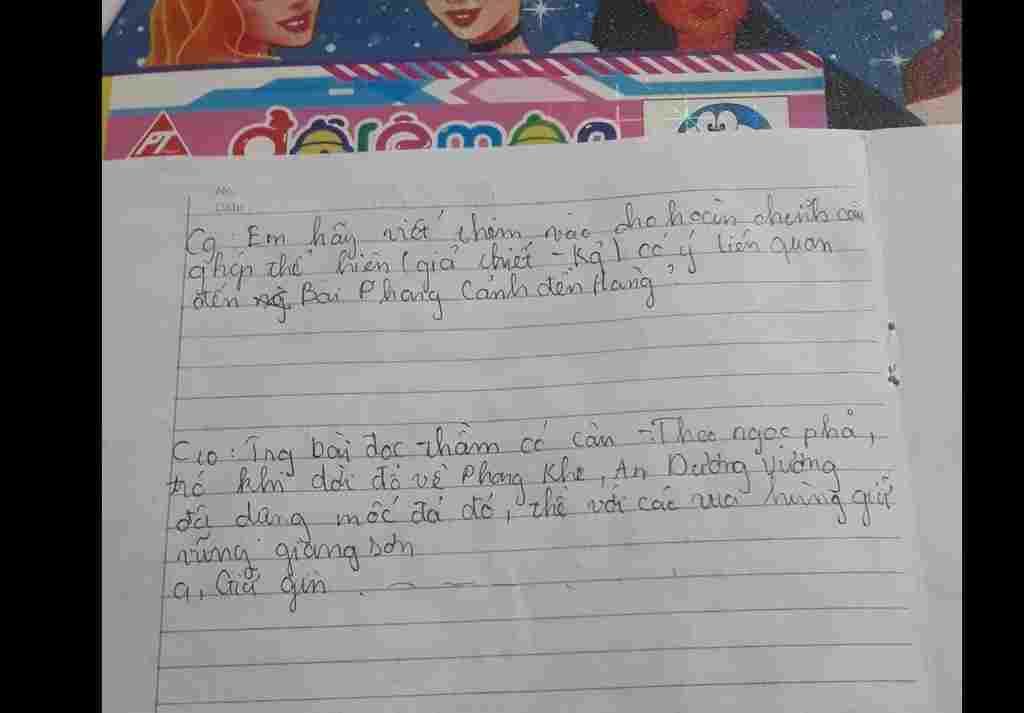 PT
đôrêmon
C9: Em hãy viết thêm vào cho hoàn chỉnh câu
ghép thể hiện (giả thiết - Kq) có ý liên quan
đến Bài Phong Cảnh đền Hùng?
C10: Tng bài đọc thầm có câu -: Theo ngọc phả,
trc khi dời đô về Phong Khê, An Dương Vương
đã dựng mốc đá đó, thề với các vua hùng giữ
vững giang sơn
a, Giữ gìn